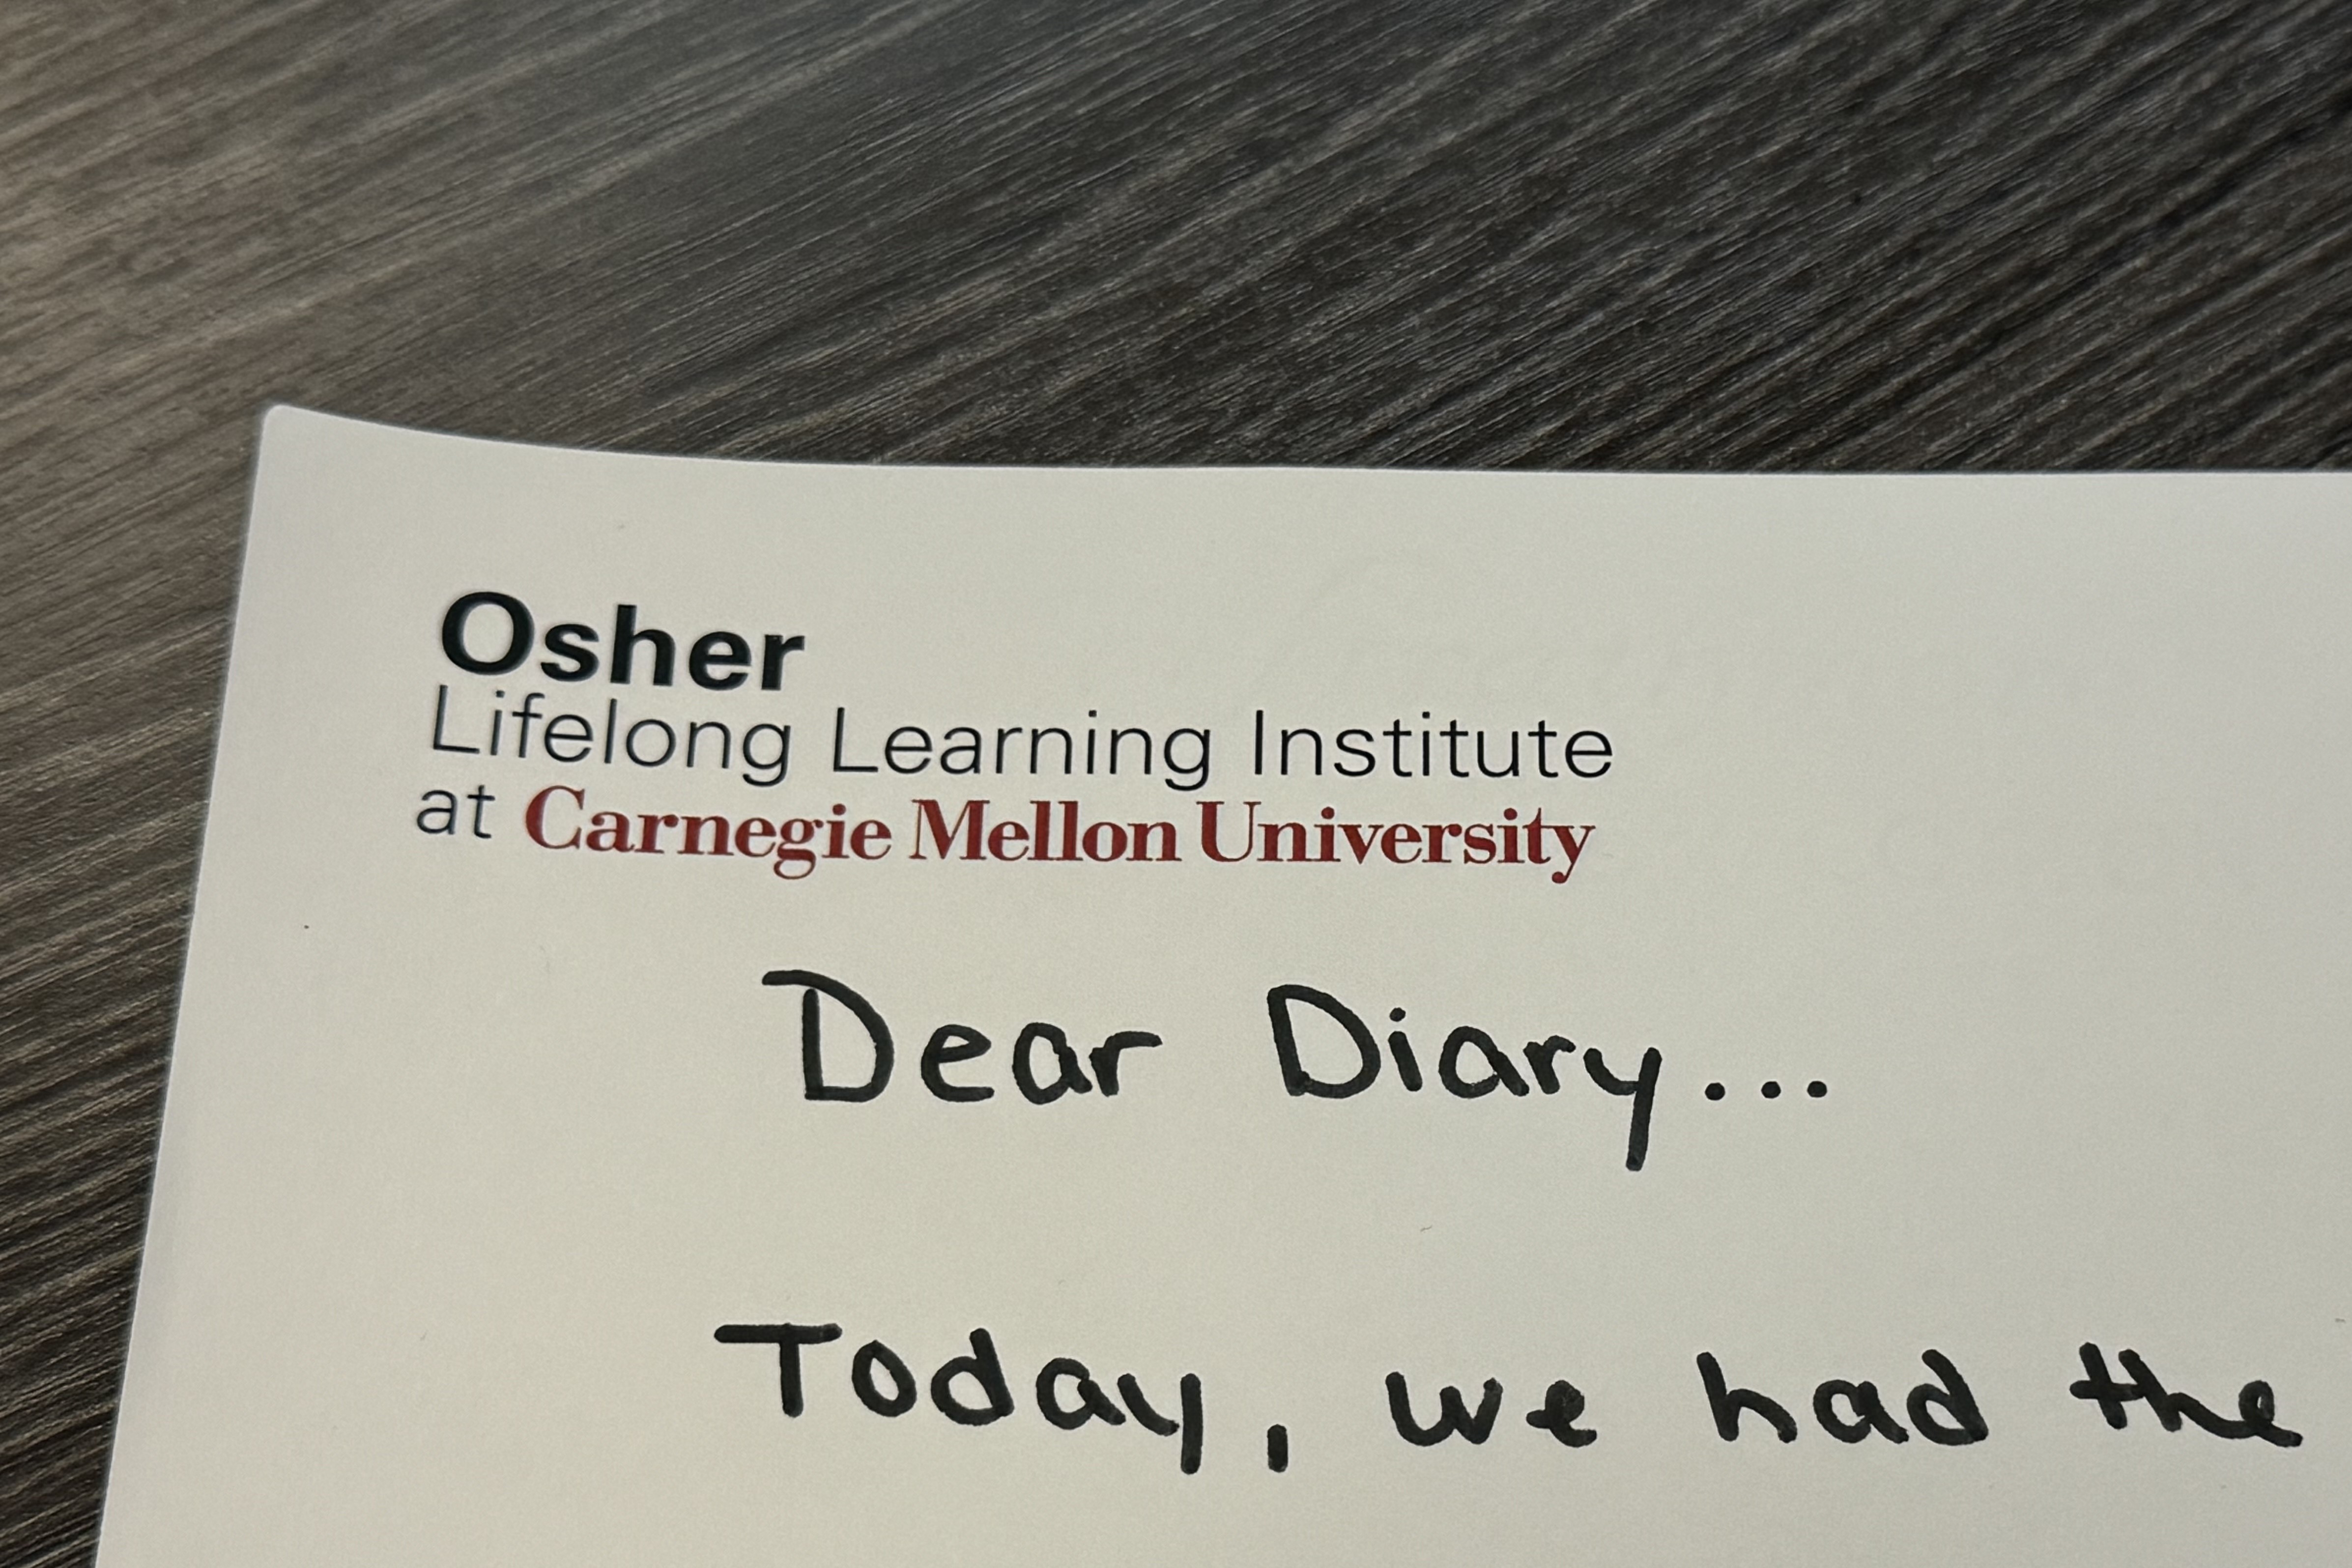 Osher
Lifelong Learning Institute
at Carnegie Mellon University
Dear Diary...
Today, we had the